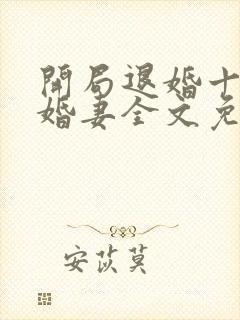 開局退婚十
婚妻全文免
安苡莫